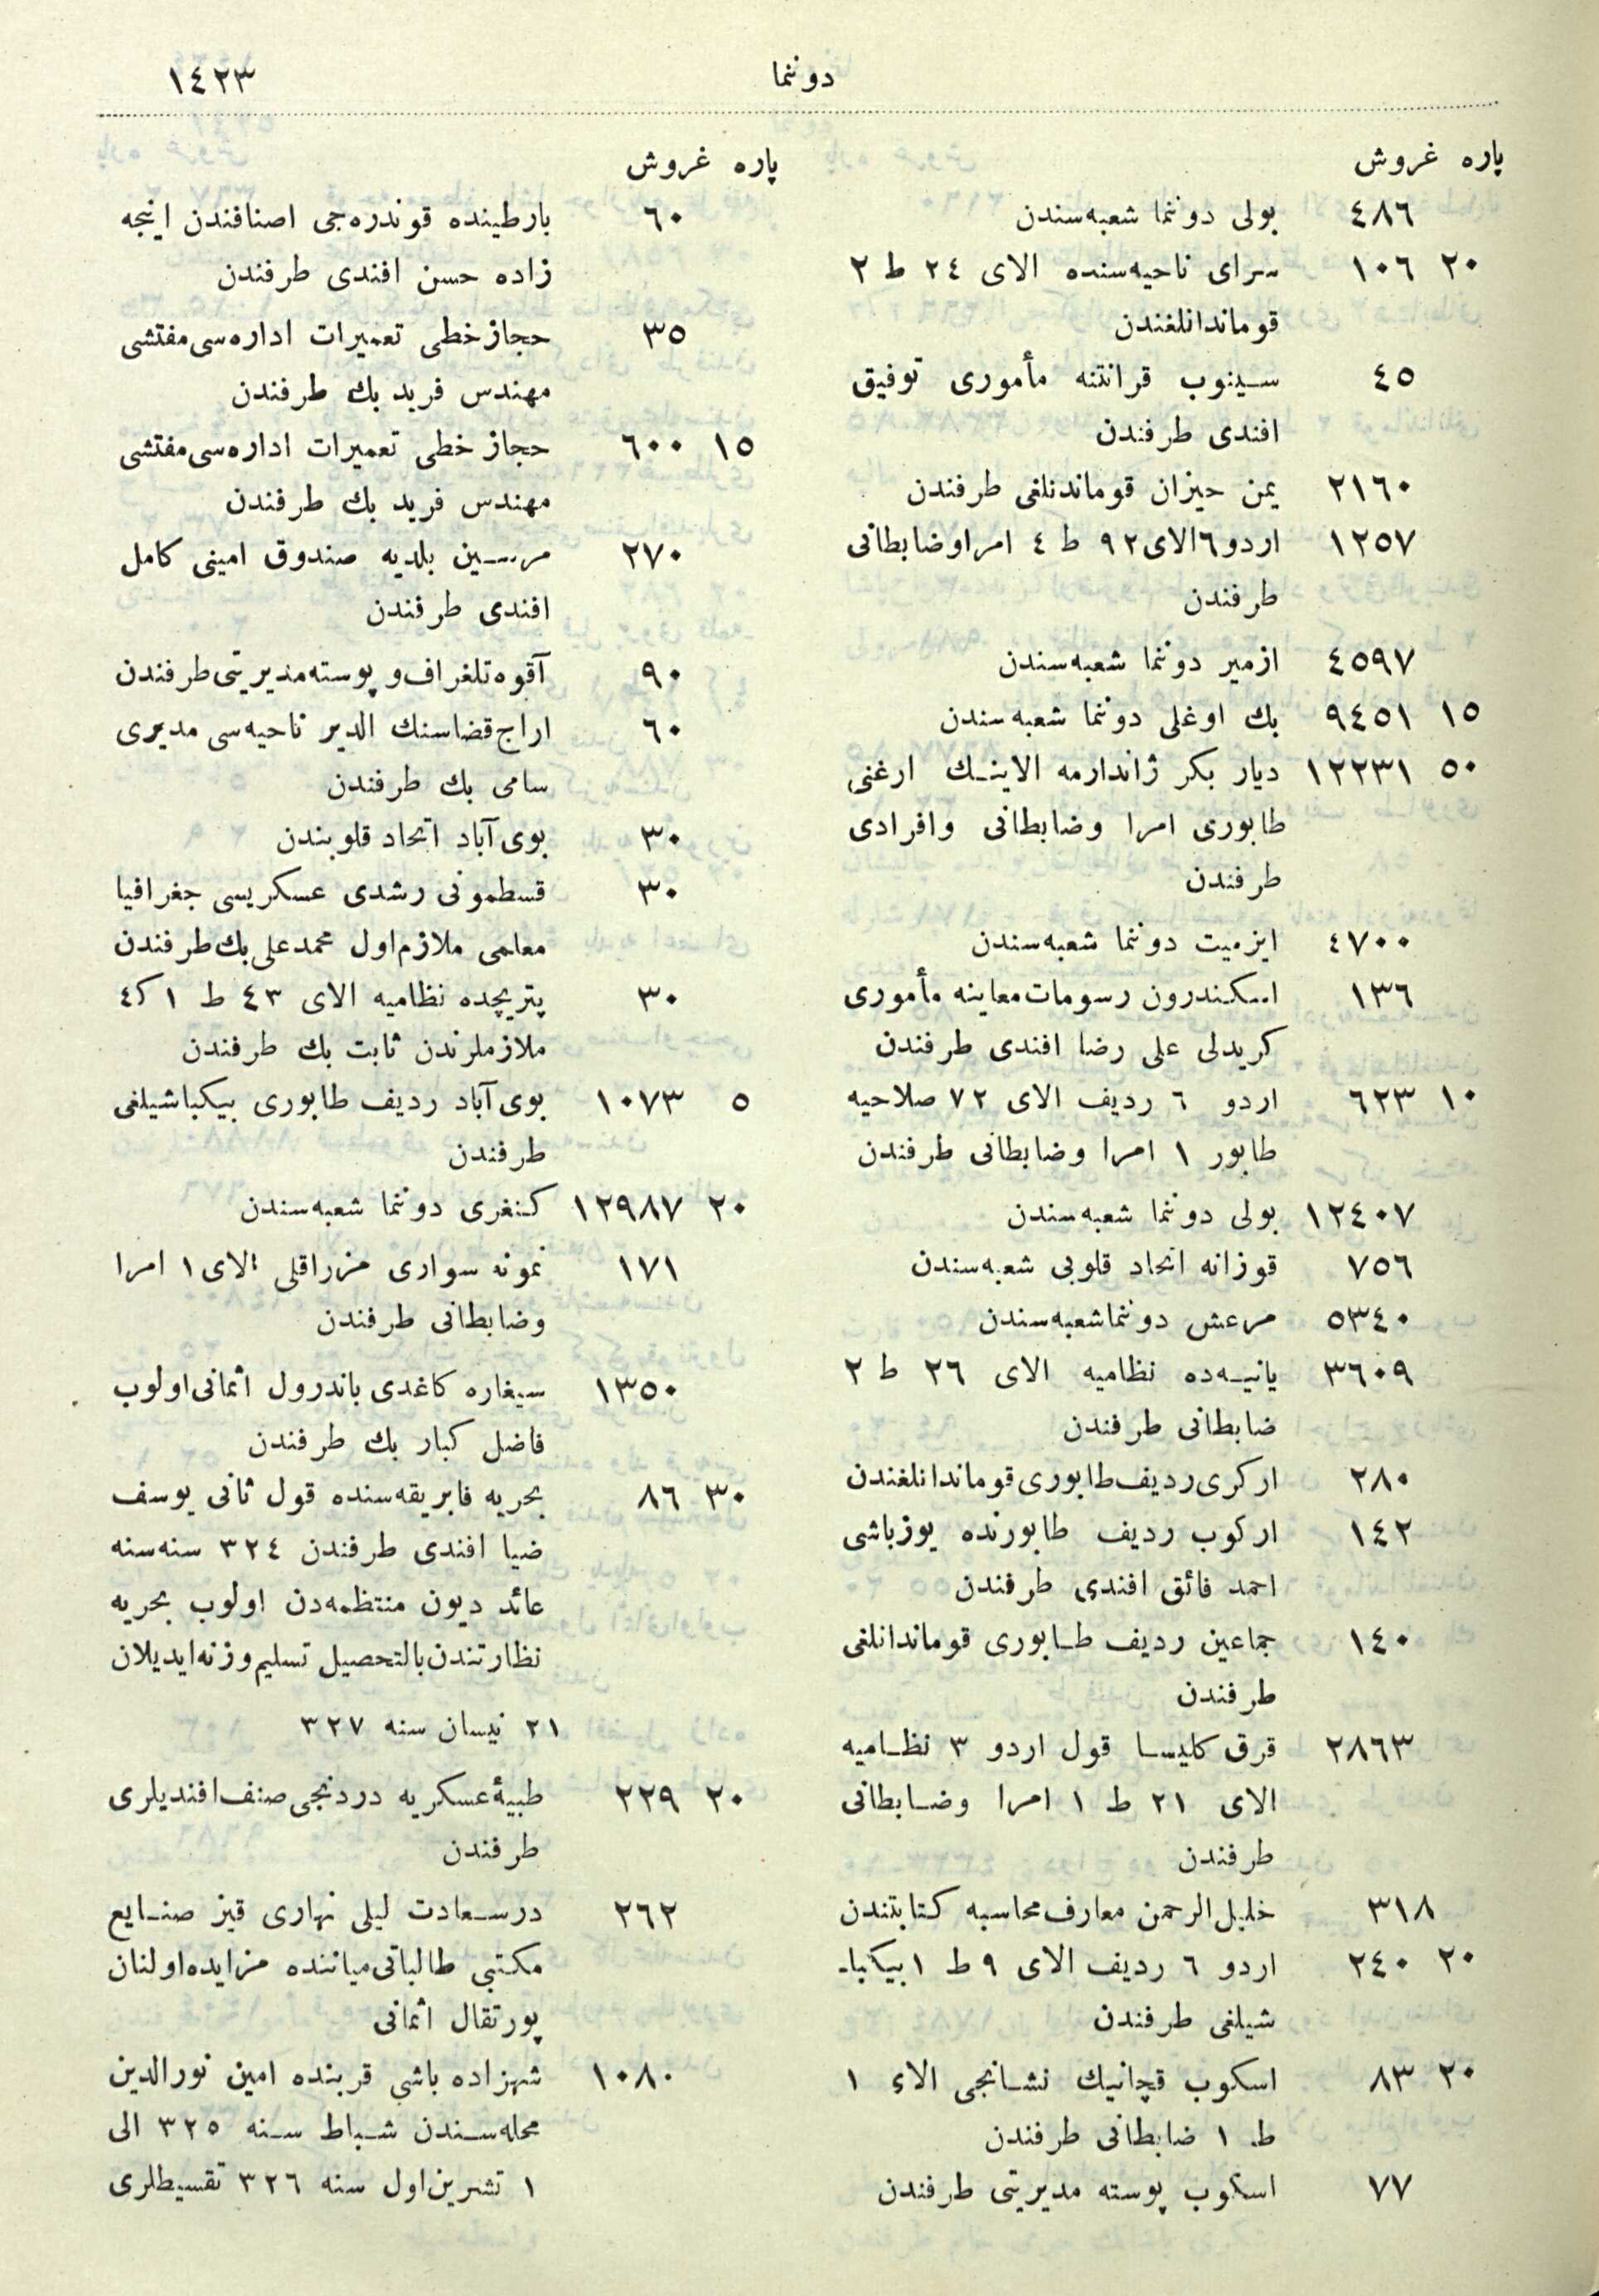 دوننما
١٤٢٣
پاره غروش
٤٨٦ بولی دوننما شعبه‌سندن
٢٠ ١٠٦ سرای ناحیه‌سنده الای ٢٤ ط ٢
قوماندانلغندن
٤٥ سینوب قرانتنه مأموری توفیق
افندی طرفندن
٢١٦٠ یمن حیزان قوماندنلغی طرفندن
١٢٥٧ اردو ٦ الای ٩٢ ط ٤ امرا وضابطانی
طرفندن
٤٥٩٧ ازمیر دوننما شعبه‌سندن
١٥ ٩٤٥١ بك اوغلی دوننما شعبه‌سندن
٥٠ ١٢٢٣١ دیار بکر ژاندارمه الاینك ارغنی
طابوری امرا وضابطانی وافرادی
طرفندن
٤٧٠٠ ایزمیت دوننما شعبه‌سندن
١٣٦ اسکندرون رسومات معاینه مأموری
کریدلی علی رضا افندی طرفندن
١٠ ٦٢٣ اردو ٦ ردیف الای ٧٢ صلاحیه
طابور ١ امرا وضابطانی طرفندن
١٢٤٠٧ بولی دوننما شعبه‌سندن
٧٥٦ قوزانه اتحاد قلوبی شعبه‌سندن
٥٣٤٠ مرعش دوننما شعبه‌سندن
٣٦٠٩ یانیه‌ده نظامیه الای ٢٦ ط ٢
ضابطانی طرفندن
٢٨٠ ارکری ردیف طابوری قوماندانلغندن
١٤٢ ارکوب ردیف طابورنده یوزباشی
احمد فائق افندی طرفندن
١٤٠ جماعین ردیف طابوری قوماندانلغی
طرفندن
٢٨٦٣ قرق کلیسا قول اردو ٣ نظامیه
الای ٢١ ط ١ امرا وضابطانی
طرفندن
٣١٨ خلیل الرحمن معارف محاسبه کتابتندن
٢٠ ٢٤٠ اردو ٦ ردیف الای ٩ ط ١ بیکبا-
شیلغی طرفندن
٢٠ ٨٣ اسکوب قچانیك نشانجی الای ١
ط ١ ضابطانی طرفندن
٧٧ اسکوب پوسته مدیریتی طرفندن
پاره غروش
٦٠ بارطینده قوندره‌جی اصنافندن اینجه
زاده حسن افندی طرفندن
٣٥ حجاز خطی تعمیرات اداره‌سی مفتشی
مهندس فرید بك طرفندن
١٥ ٦٠٠ حجاز خطی تعمیرات اداره‌سی مفتشی
مهندس فرید بك طرفندن
٢٧٠ مرسین بلدیه صندوق امینی کامل
افندی طرفندن
٩٠ آقوه تلغراف و پوسته مدیریتی طرفندن
٦٠ اراج قضاسنك الدیر ناحیه‌سی مدیری
سامی بك طرفندن
٣٠ بوی آباد اتحاد قلوبندن
٣٠ قسطمونی رشدی عسکریسی جغرافیا
معلمی ملازم اول محمد علی بك طرفندن
٣٠ پتریچده نظامیه الای ٤٣ ط ١ ك ٤
ملازملرندن ثابت بك طرفندن
٥ ١٠٧٣ بوی آباد ردیف طابوری بیکباشیلغی
طرفندن
٢٠ ١٢٩٨٧ کنغری دوننما شعبه‌سندن
١٧١ نمونه سواری مزراقلی الای ١ امرا
وضابطانی طرفندن
١٣٥٠ سیغاره کاغدی باندرول اثمانی اولوب
فاضل کبار بك طرفندن
٣٠ ٨٦ بحریه فابریقه‌سنده قول ثانی یوسف
ضیا افندی طرفندن ٣٢٤ سنه‌سنه
عائد دیون منتظمه‌دن اولوب بحریه
نظارتندن بالتحصیل تسلیم وزنه ایدیلان
٢١ نیسان سنه ٣٢٧
٢٠ ٢٢٩ طبیهٔ عسکریه دردنجی صنف افندیلری
طرفندن
٢٦٢ درسعادت لیلی نهاری قیز صنایع
مکتبی طالباتی میاننده مزایده اولنان
پورتقال اثمانی
١٠٨٠ شهزاده باشی قربنده امین نورالدین
محله‌سندن شباط سنه ٣٢٥ الی
١ تشرین اول سنه ٣٢٦ تقسیطلری